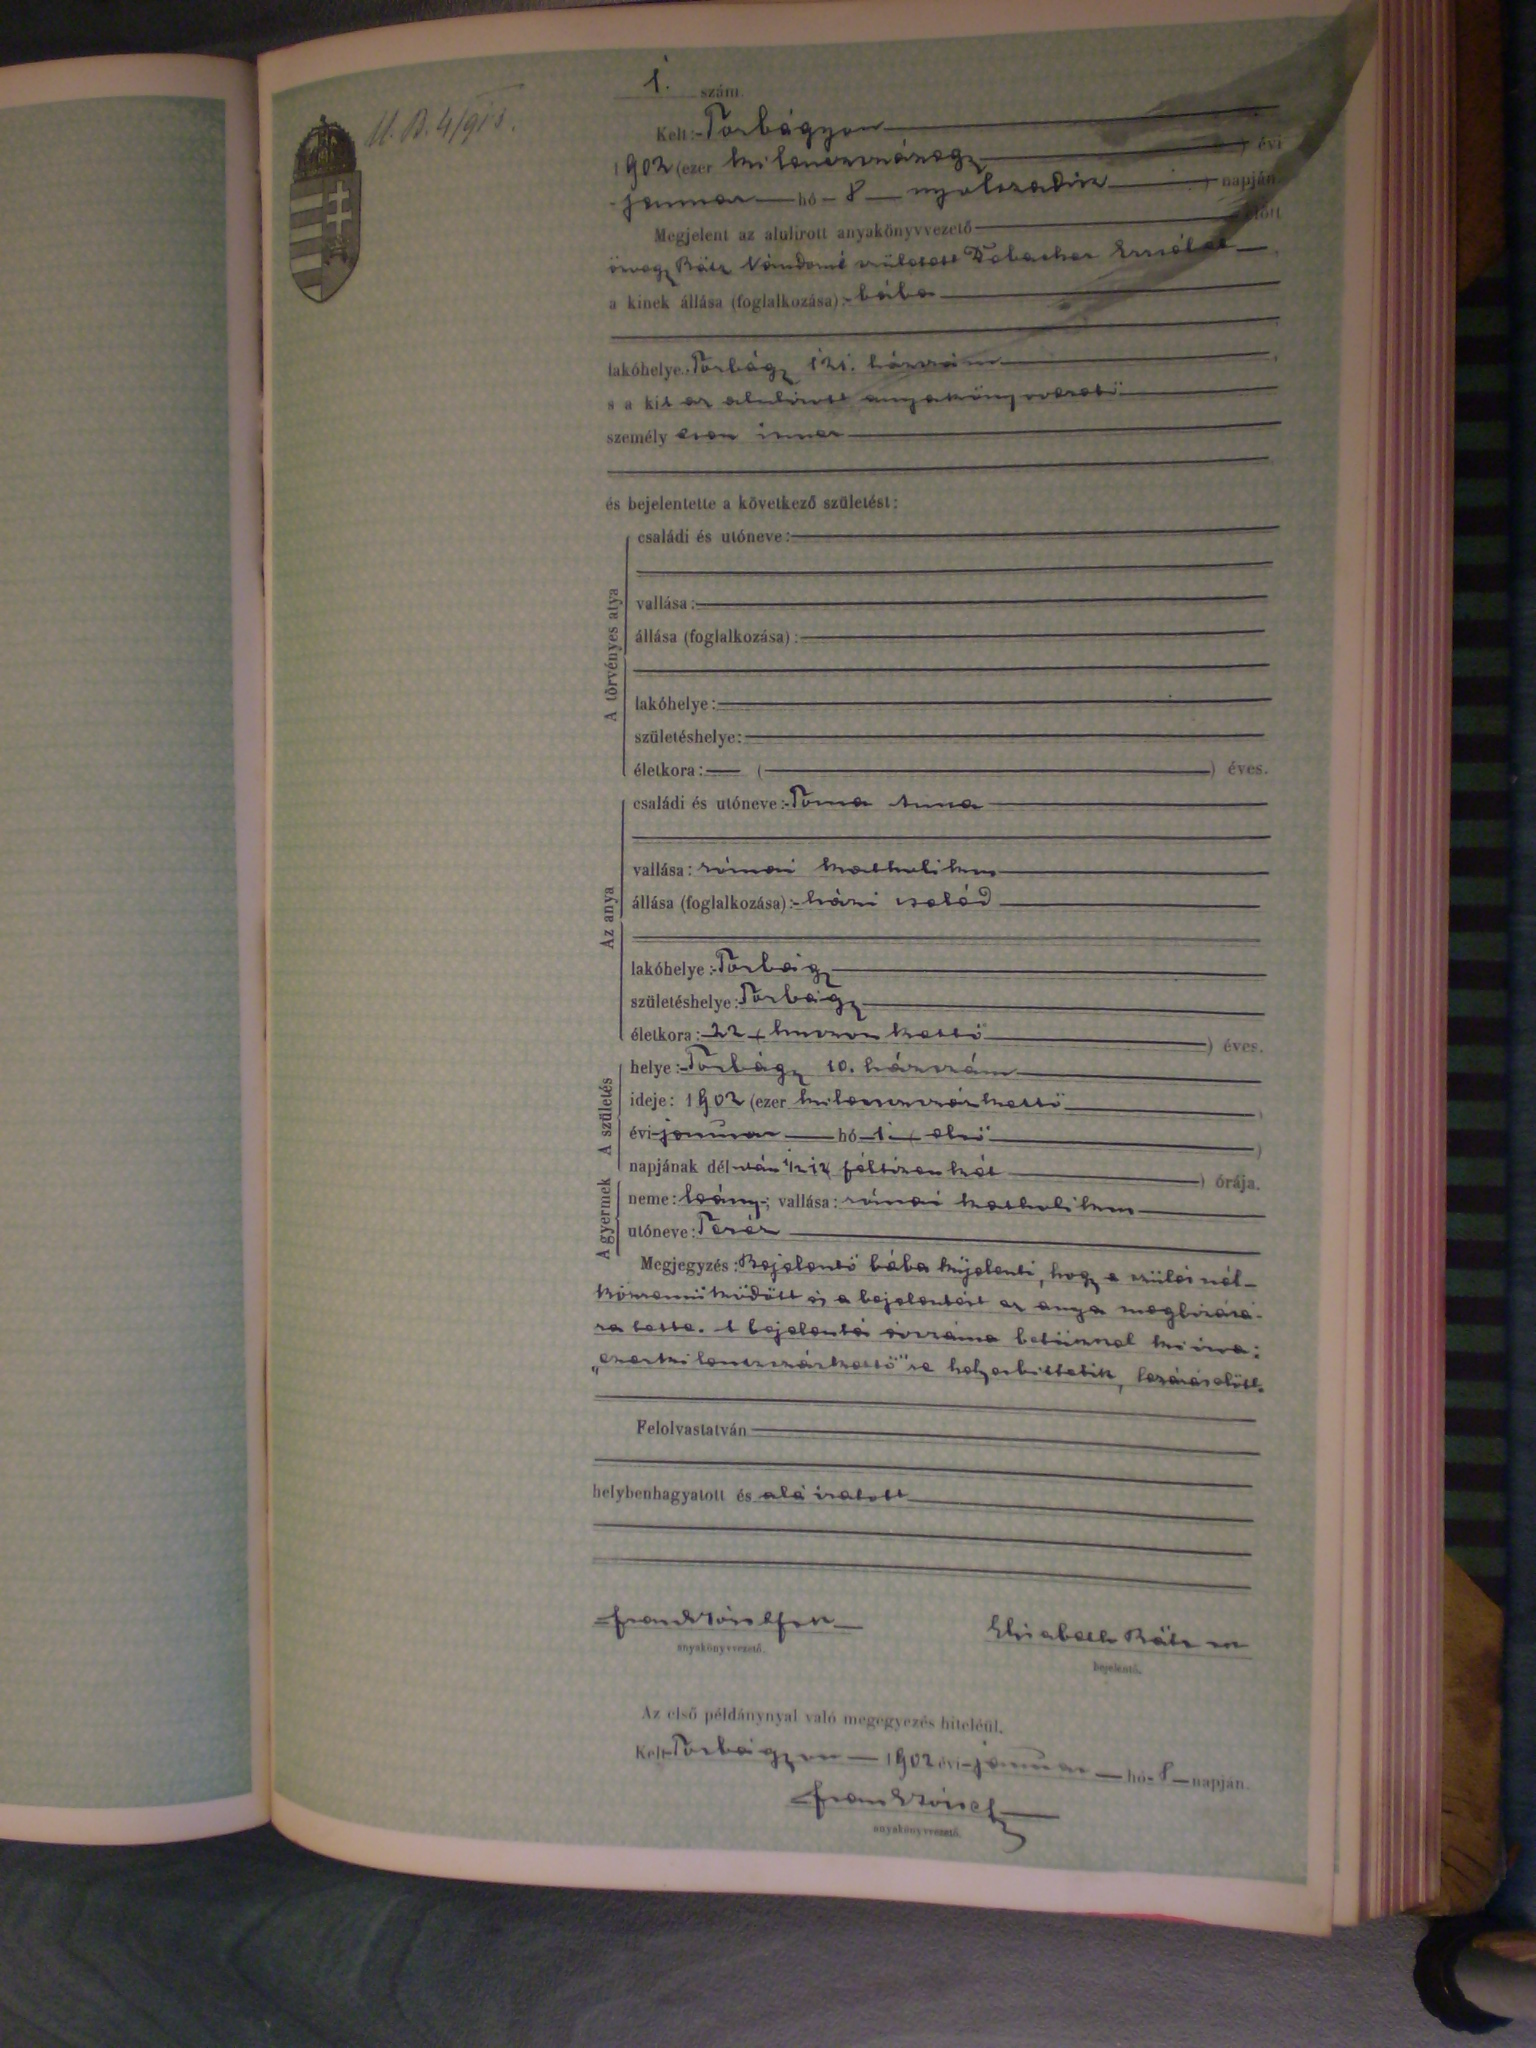 1. szám
Kelt: Torbágyon
1902 (ezer kilencszázegy ) évi
januar hó 8 nyolczadik ) napján
Megjelent az alulirott anyakönyvvezető előtt
özvegy Rätz Nándorné született
a kinek állása (foglalkozása): bába
lakóhelye: Torbágy 121. házszám
s a kit az alulirott anyakönyvvezető
személyesen ismer
és bejelentette a következő születést:
A törvényes atya
családi és utóneve:
vallása:
állása (foglalkozása):
lakóhelye:
születéshelye:
életkora: ( ) éves.
Az anya
családi és utóneve: Toma Anna
vallása: római katholikus
állása (foglalkozása): házi cseléd
lakóhelye: Torbágy
születéshelye: Torbágy
életkora: 22 ( huszonkettő ) éves.
A születés
helye: Torbágy 10. házszám
ideje: 1902 (ezer kilenczszázkettő )
évi januar hó 1 ( első )
napjának délután ½12 féltizenkét ) órája.
A gyermek
neme: leány; vallása: római katholikus
utóneve: Teréz
Megjegyzés: Bejelentő bába kijelenti, hogy a szülésnél
közreműködött és a bejelentést az anya megbizásá-
ra tette. A bejelentés évszáma betűkkel kiirva:
„ezerkilenczszázkettő"re helyesbittetik, lezárás előtt.
Felolvastatván
helybenhagyatott és aláiratott
anyakönyvvezető.
Elisabeth Rätz
bejelentő.
Az első példánynyal való megegyezés hiteléül.
Kelt Torbágyon 1902 évi januar hó 8 napján.
Frank József
anyakönyvvezető.